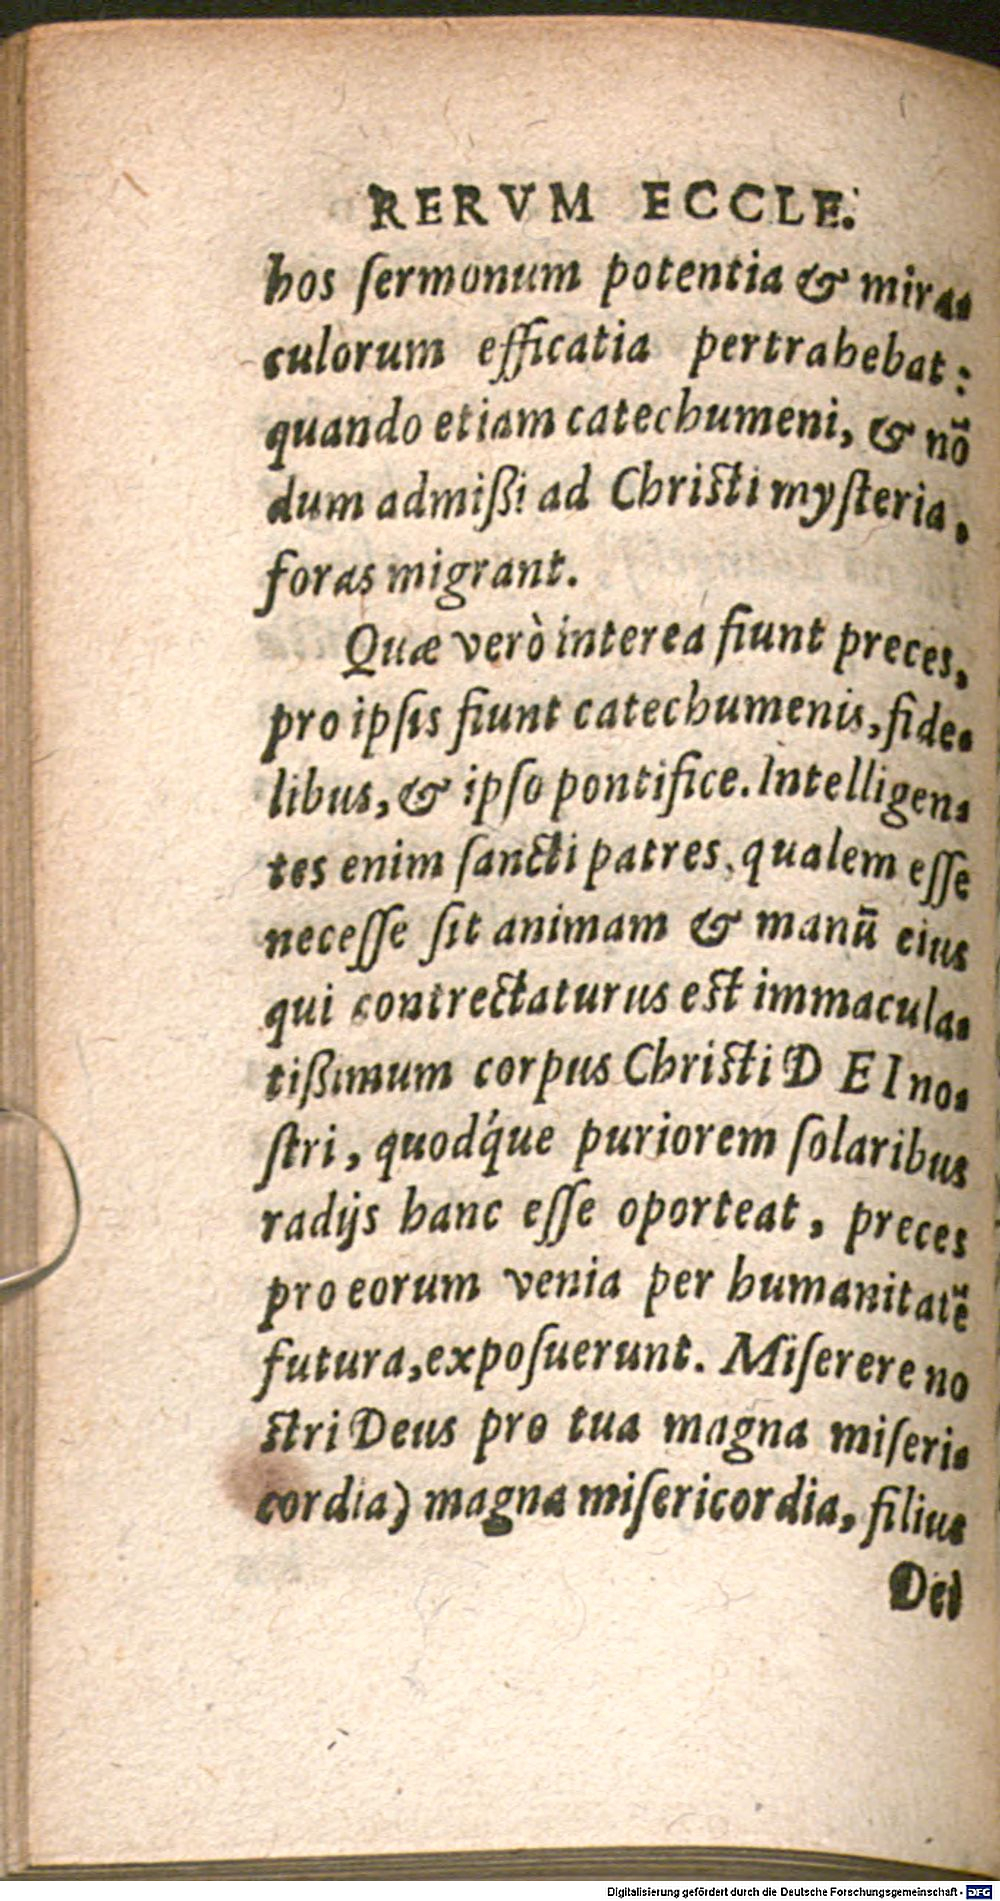 RERVM ECCLE.
hos sermonum potentia & mira-
culorum efficatia pertrahebat:
quando etiam catechumeni, & nõ
dum admißi ad Christi mysteria,
foras migrant.
Quæ verò interea fiunt preces,
pro ipsis fiunt catechumenis, fide-
libus, & ipso pontifice. Intelligen-
tes enim sancti patres, qualem esse
necesse sit animam & manū eius
qui contrectaturus est immacula-
tißimum corpus Christi D E I no-
stri, quodq́ue puriorem solaribus
radijs hanc esse oporteat, preces
pro eorum venia per humanitatē
futura, exposuerunt. Miserere no
stri Deus pro tua magna miseri-
cordia) magna misericordia, filius
Dei
Digitalisierung gefördert durch die Deutsche Forschungsgemeinschaft - DFG